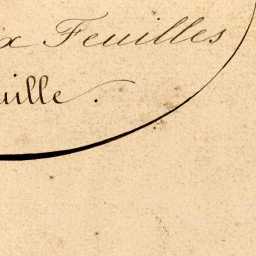 ix Feuilles
uille.